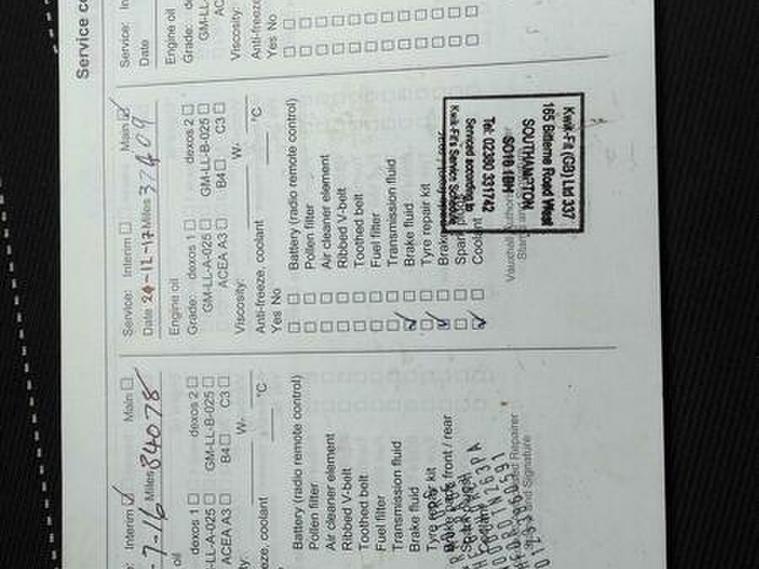 Service: Interim ☐ Main ☑
Date 20-12-17 Miles 37409
Engine oil
Grade: dexos 1 ☐ dexos 2 ☐
GM-LL-A-025 ☐ GM-LL-B-025 ☐
ACEA A3 ☐ B4 ☐ C3 ☐
Viscosity: W-
Anti-freeze, coolant °C
Yes No
☐ ☐ Battery (radio remote control)
☐ ☐ Pollen filter
☐ ☐ Air cleaner element
☐ ☐ Ribbed V-belt
☐ ☐ Toothed belt
☐ ☐ Fuel filter
☐ ☐ Transmission fluid
☑ ☐ Brake fluid
☐ ☐ Tyre repair kit
☑ ☐ Brake
☐ ☐ Spar
☑ ☐ Coolant
Kwik-Fit (GB) Ltd 337
165 Bitterne Road West
SOUTHAMPTON
SO18 1BH
Tel: 02380 331742
Serviced according to
Kwik-Fit's Service Schedule
Vauxhall Author
Interim ☑ Main ☐
-7-16 Miles 34078
oil
dexos 1 ☐ dexos 2 ☐
LL-A-025 ☐ GM-LL-B-025 ☐
ACEA A3 ☐ B4 ☐ C3 ☐
W-
eeze, coolant °C
Battery (radio remote control)
Pollen filter
Air cleaner element
Ribbed V-belt
Toothed belt
Fuel filter
Transmission fluid
Brake fluid
Tyre repair kit
Brake pads front / rear
Repairer
and Signature
Service co
Service: In
Date
Engine oil
Grade: d
GM-LL-
ACE
Viscosity:
Anti-freeze
Yes No